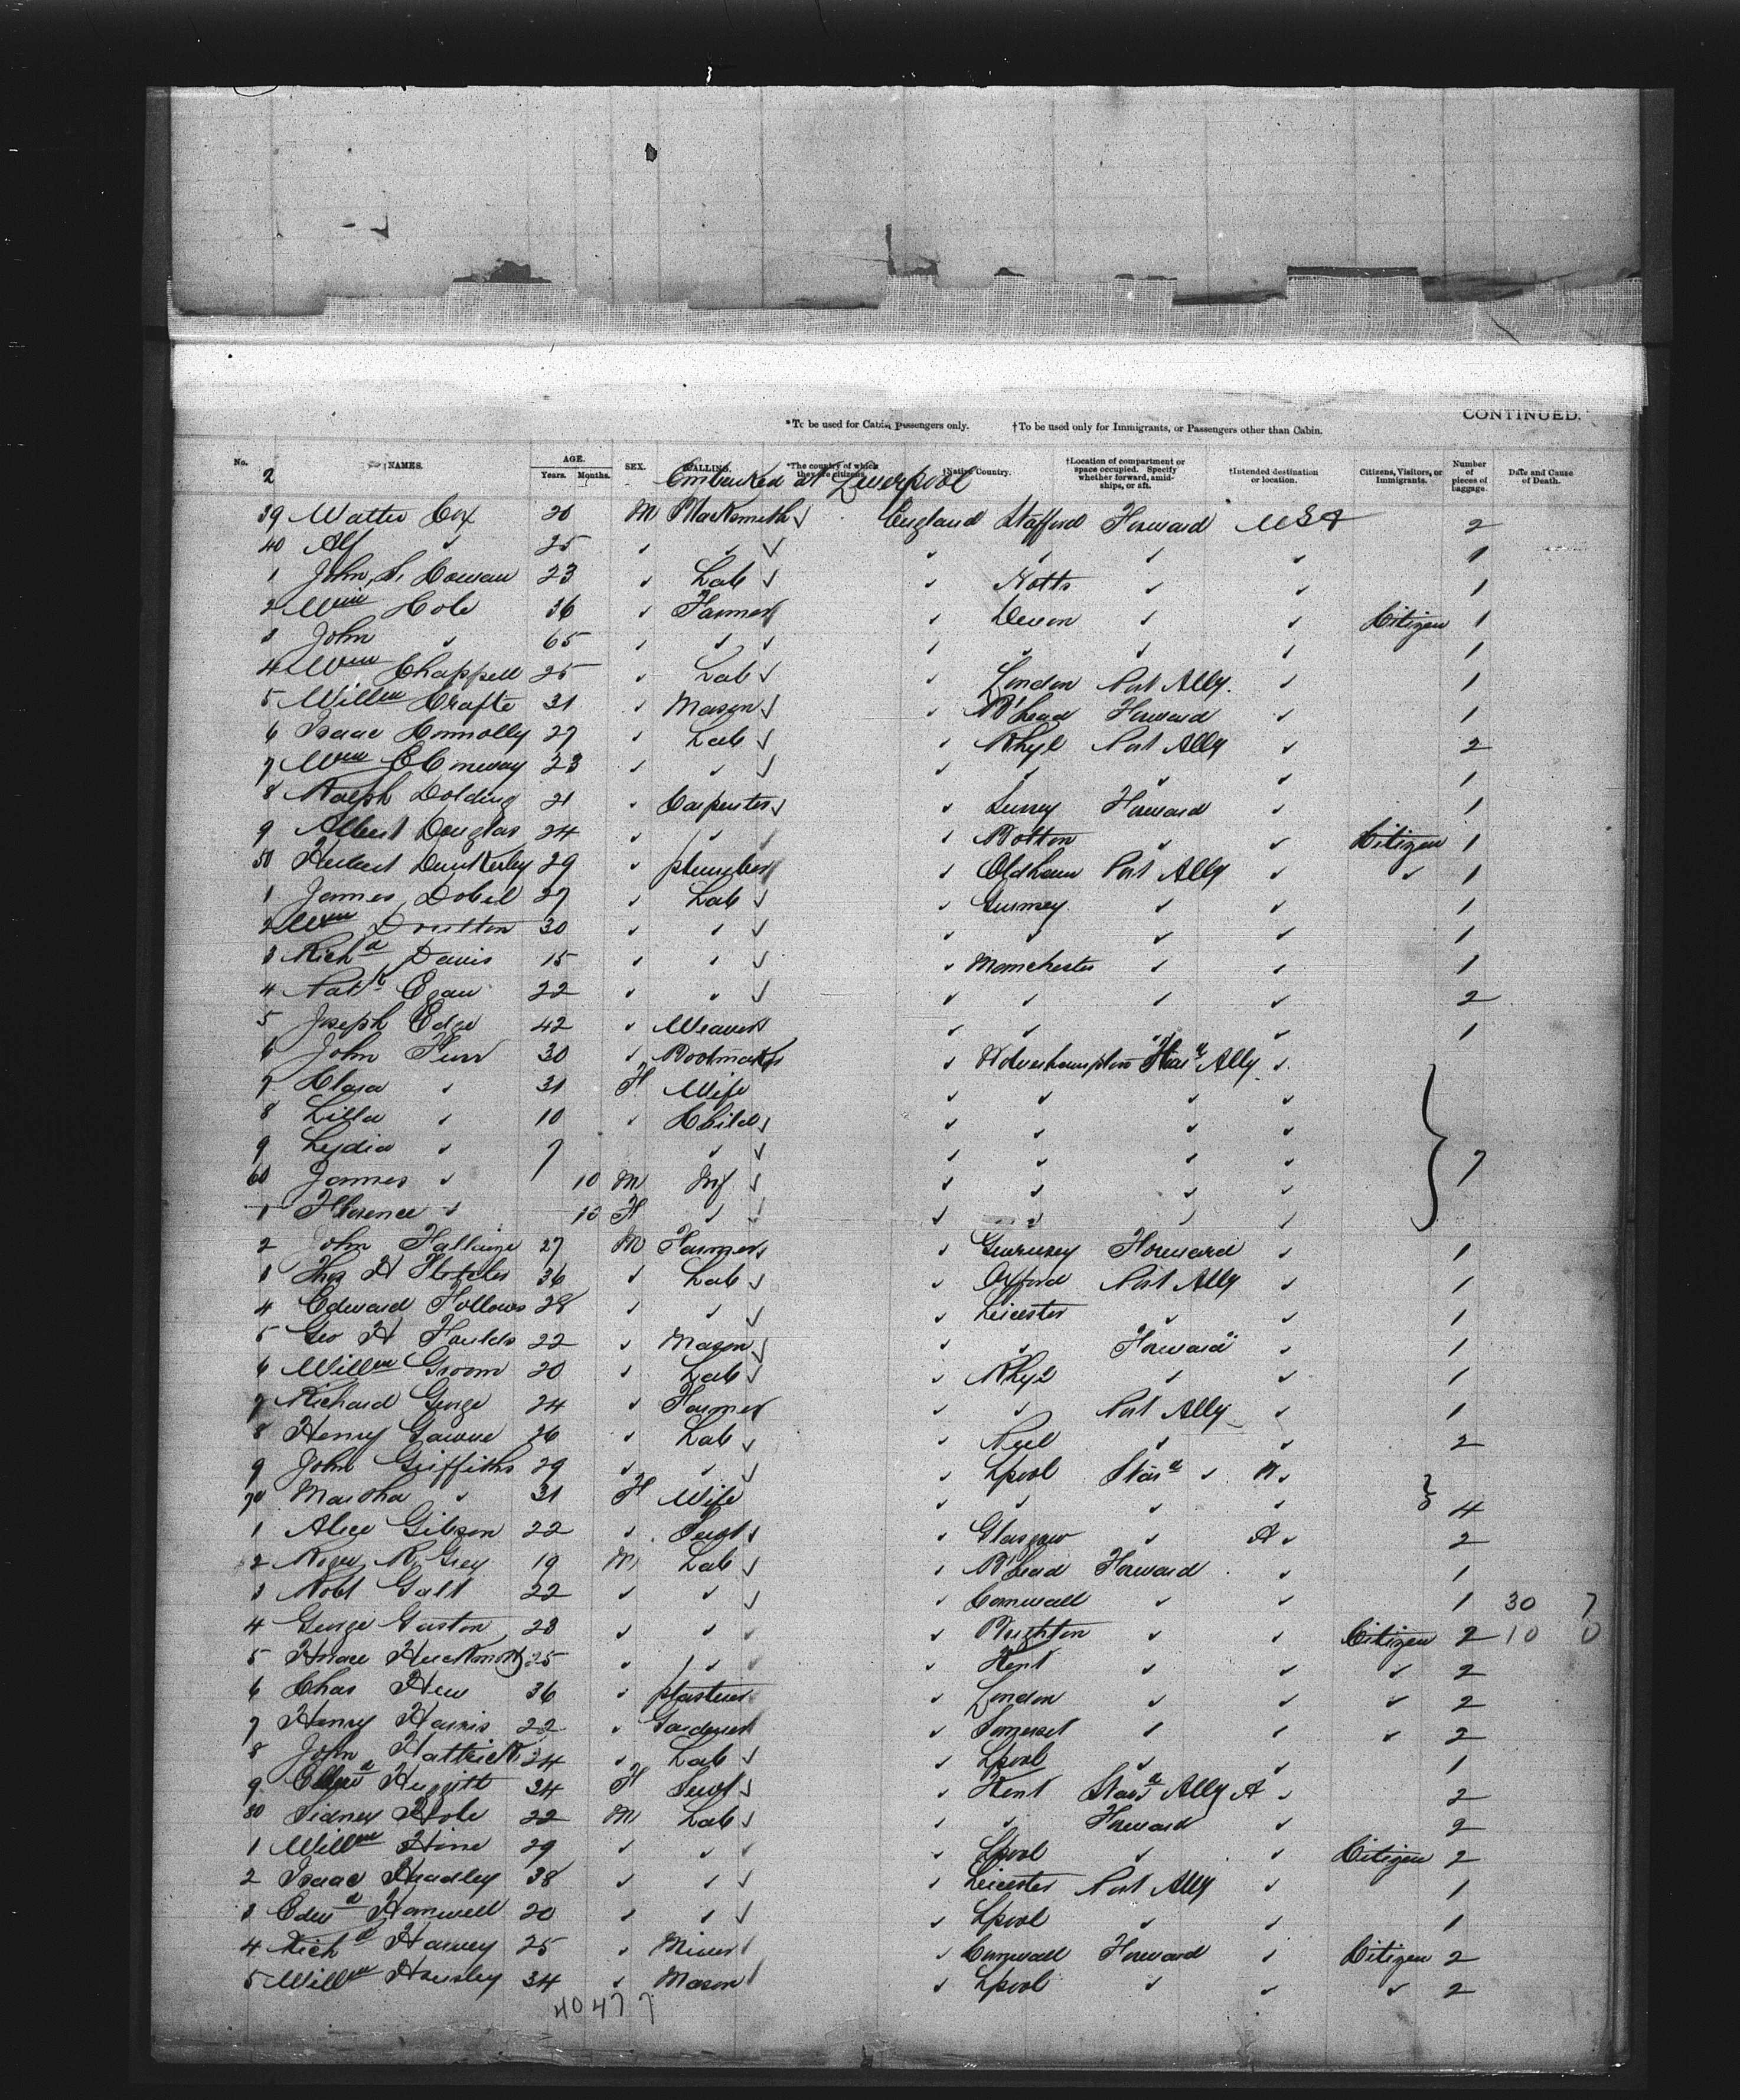 CONTINUED.
*To be used for Cabin Passengers only. †To be used only for Immigrants, or Passengers other than Cabin.
No. NAMES. AGE. Years. Months. SEX. CALLING. *The country of which they are citizens. †Native Country. †Location of compartment or space occupied. Specify whether forward, amidships, or aft. †Intended destination or location. Citizens, Visitors, or Immigrants. Number of pieces of baggage. Date and Cause of Death.
2 Embarked at Liverpool
39 Walter Cox 20 M Blacksmith England Stafford Forward USA 2
40 Alf " 25 " " " " " " 1
1 John S. Cowan 23 " Lab " Notts " " 1
2 Wm Cole 36 " Farmer " Devon " " Citizen 1
3 John " 65 " " " " " " 1
4 Wm Chappell 25 " Lab " London Port Ally " 1
5 Willm Crafts 31 " Mason " B'head Forward " 1
6 Isaac Connolly 27 " Lab " Rhyl Port Ally " 2
7 Wm C Conway 23 " " " " " " 1
8 Ralph Dolding 21 " Carpenter " Surrey Forward " 1
9 Albert Douglas 24 " " " Bolton " " Citizen 1
50 Herbert Dunkerley 29 " plumber " Oldham Port Ally " " 1
1 James Dobel 27 " Lab " Guernsey " " 1
2 Wm 30 " " " " " " 1
3 Richd Davis 15 " " " Manchester " " 1
4 Patk Egan 22 " " " " " " 2
5 Joseph Edge 42 " Weaver " " " 1
6 John Furr 30 " Bootmaker " Wolverhampton Starbd Ally "
7 Clara " 31 F Wife " " " "
8 Lilla " 10 " Child " " " "
9 Lydia " 7 " " " " " 7
60 James " 10 M Inf " " " "
1 Florence " 10 F " " " " "
2 John Fallaize 27 M Farmer " Guernsey Forward " 1
3 Thos H Fletcher 36 " Lab " Oxford Port Ally " 1
4 Edward Follows 28 " " " Leicester " " 1
5 Geo H Foulds 22 " Mason " " Forward " 1
6 Willm Groom 20 " Lab " Rhyl " " 1
7 Richard George 24 " Farmer " " Port Ally " 1
8 Henry Gawne 26 " Lab " Peel " " 2
9 John Griffiths 29 " " " Lpool Starbd " "
70 Martha " 31 F Wife " " " " 4
1 Alice Gibson 22 " Servt " Glasgow " A " 2
2 Roger R Grey 19 M Lab " B'head Forward " 1
3 Robt Galt 22 " " " Cornwall " " 1 30 7
4 George Garton 23 " " " Brighton " " Citizen 2 10 0
5 Horace 25 " " " Kent " " " 2
6 Chas Hew 36 " plasterer " London " " " 2
7 Henry Harris 22 " Gardener " Somerset " " " 2
8 John Hattrick 24 " Lab " Lpool " " 1
9 Huggitt 24 F Servt " Kent Starbd Ally A " 2
80 Sidney Hole 22 M Lab " " Forward " 2
1 Willm Hine 29 " " " Lpool " " Citizen 2
2 Isaac Headley 38 " " " Leicester Port Ally " 1
3 Edwd Hamwell 20 " " " Lpool " " 1
4 Richd Harvey 25 " Miner " Cornwall Forward " Citizen 2
5 Willm Housley 34 " Mason " Lpool " " " 2
40 47 7